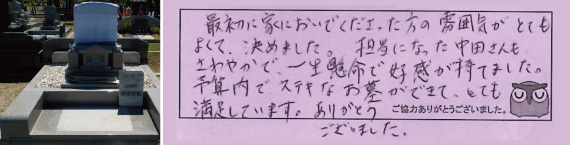 最初に家においでくださった方の雰囲気がとても
よくて、決めました。担当になった中田さんも
さわやかで、一生懸命で好感が持てました。
予算内でステキなお墓ができて、とても
満足しています。ありがとう
ございました。
ご協力ありがとうございました。